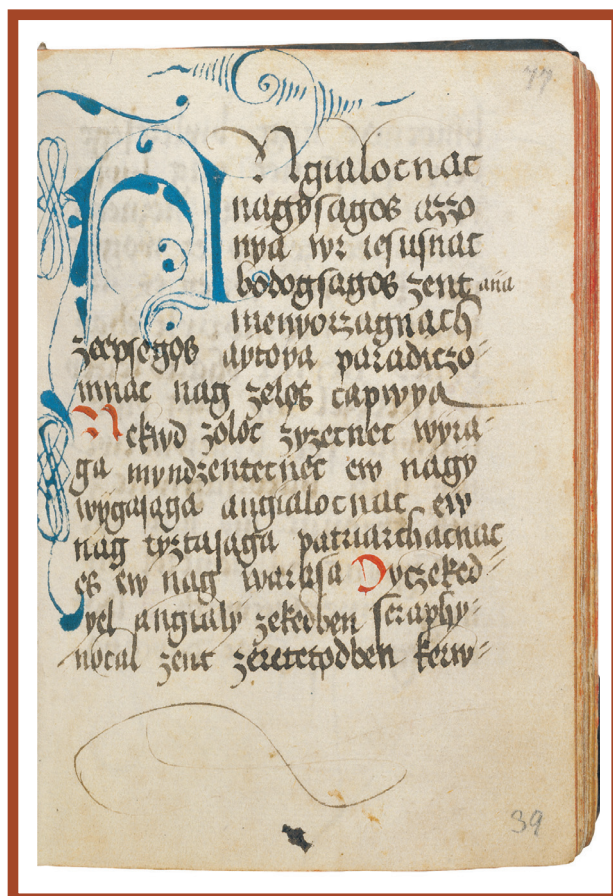 77
Angialocnac
nagysagos azzo
nya wr iesusnac
bodogsagos zent ana
menyorzagnach
zeepsegos aytoya paradiczo=
mnac nag zelos capwya
Nekwd zoloc zyzecnec wyra=
ga myndzentecnec ew nagy
wygasaga angialocnac ew
nag tyztasaga patriarchacnac
es ew nag warasa Dyczeked=
yel angialy zekedben seraphy=
nocal zent zeretetodben kerw=
39